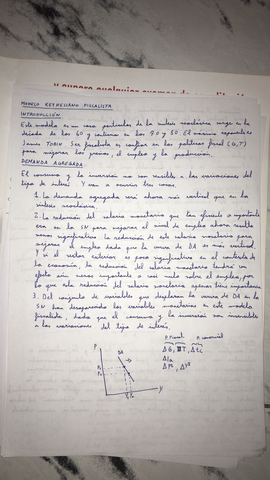 MODELO KEYNESIANO FISCALISTA
INTRODUCCIÓN
Este modelo es un caso particular de la síntesis neoclásica surge en la
década de los 60 y continua en los 70 y 80. El máximo exponente es
James TOBIN. Ser fiscalista es confiar en las políticas fiscal (G,T)
para mejorar los precios, el empleo y la producción.
DEMANDA AGREGADA
El consumo y la inversión no son sensibles a las variaciones del
tipo de interés. Y van a ocurrir tres cosas.
1. La demanda agregada será ahora más vertical que en la
síntesis neoclásica.
2. La reducción del salario monetario que tan eficaz e importante
era en la SN para mejorar el nivel de empleo ahora resulta
menos significativa la reducción de este salario monetario para
mejorar el empleo dado que la curva de DA es más vertical.
Y si el sector exterior es poco significativo en el contexto de
la economía, la reducción del salario monetario tendrá un
efecto aún menos importante o casi nulo sobre el empleo, por
lo que esta reducción del salario monetario apenas tiene importancia
3. Del conjunto de variables que desplazan la curva de DA en la
SN han desaparecido las variables monetarias en este modelo
fiscalista, dado que el consumo y la inversión son insensibles
a las variaciones del tipo de interés.
P. Fiscal P. comercial
P DA
ΔG, ∇T,
Y